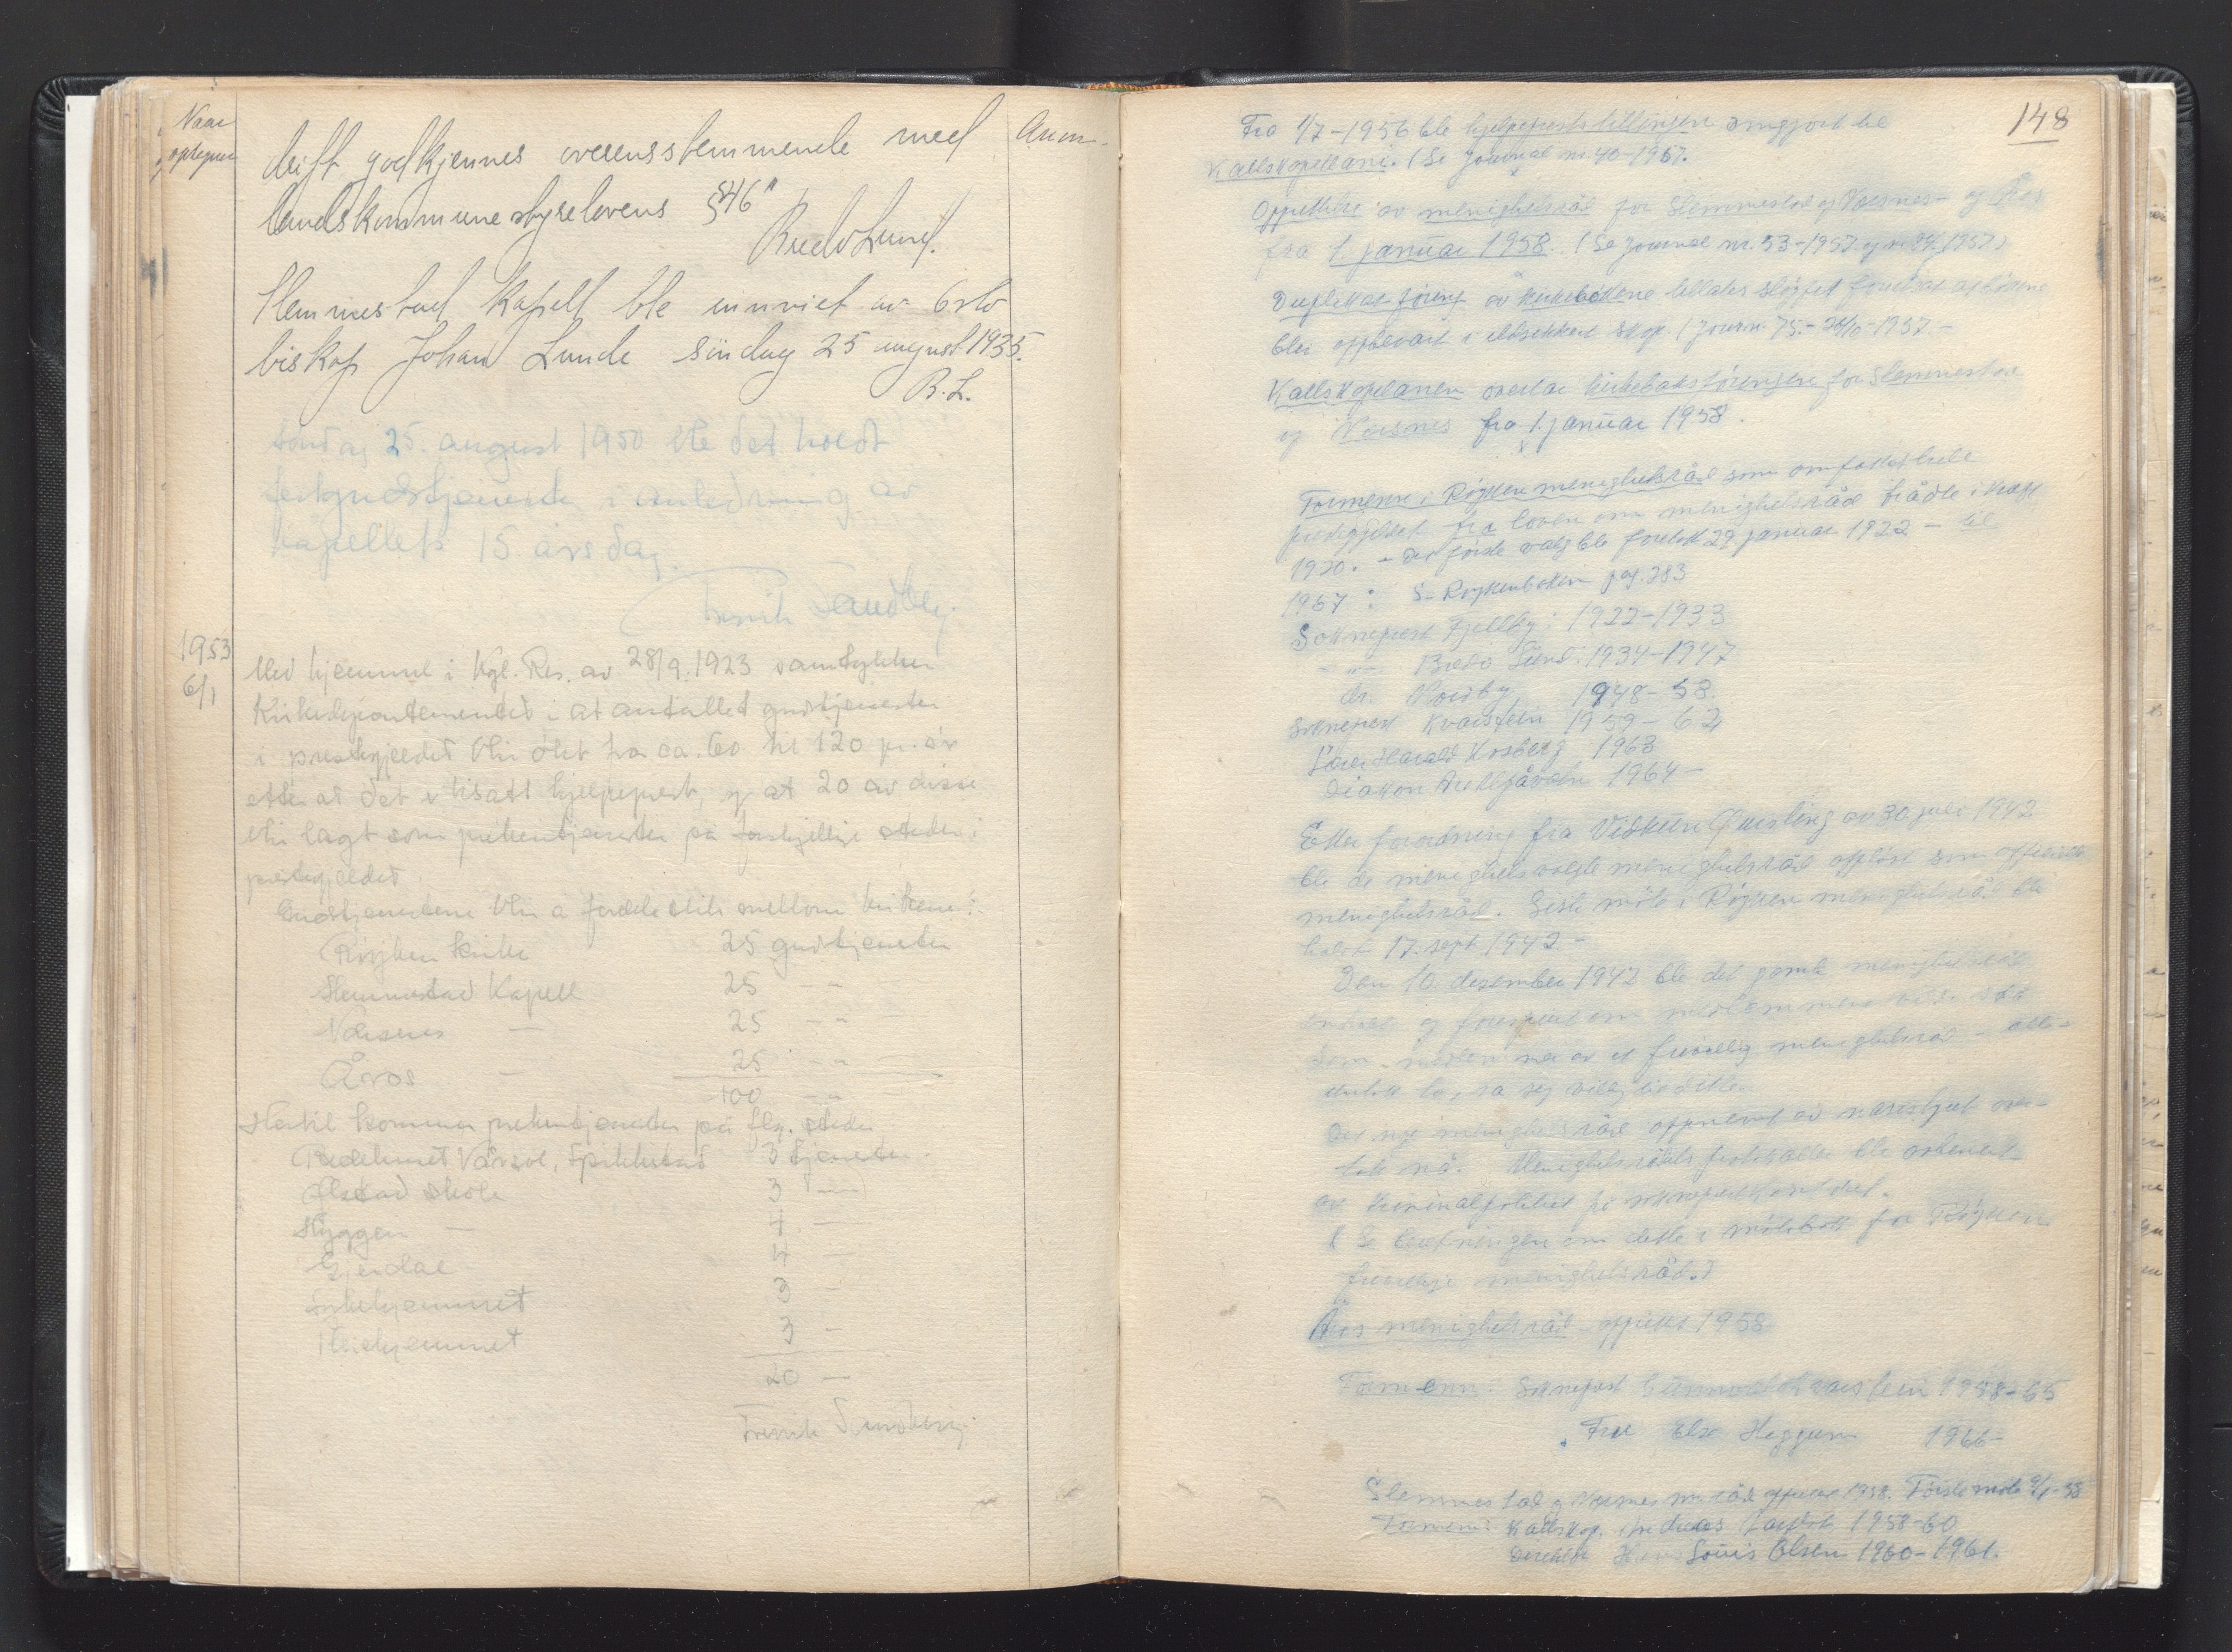 Naar
optegnet
Anm.
drift godkjennes overensstemmende med
landskommunestyrelovens §46"
Bredo Lund.
Slemmestad Kapell ble innviet av Oslo
biskop Johan Lunde søndag 25 august 1935.
B.L.
Søndag 25. august 1950 ble det holdt
festgudstjeneste i anledning av
kapellets 15. årsdag.
1953
6/1
Med hjemmel i Kgl. Res. av 28/9. 1923 samtykker
Kirkedepartementet i at antallet gudstjenester
i prestegjeldet blir øket fra ca. 60 til 120 pr. år
etter at det er tilsatt hjelpeprest, og at 20 av disse
blir lagt som prekentjenester på forskjellige steder i
prestegjeldet.
Gudstjenestene blir å fordele slik mellom kirkene:
Røyken kirke 25 gudstjenester
Slemmestad Kapell 25 - -
Nærsnes — 25 - -
Åros — 25 - -
100 - -
Hertil kommer prekentjenester på flg. steder
Bedehuset Vårsol, Spikkestad 3 tjenester.
skole 3 —
Hyggen — 4 —
Gjerdal 4 —
3 —
3 —
20 —
148
Fra 1/7-1956 ble hjelpepreststillingen omgjort til
Kallskapellani. (Se Journal nr 40-1957.
Opprettelse av menighetsråd for Slemmestad og Nærsnes- og Åros
fra 1. januar 1958. (Se Journal nr. 53-1957 og nr 1957)
Duplikatføring av kirkebøkene tillates sløyfet
blir oppbevart i ildsikkert skap. (Journ. 75.- 24/10-1957-
Kallskapellanen overtar kirkebokføringen for Slemmestad
og Nærsnes fra 1. januar 1958.
Formenn i Røyken menighetsråd som omfattet hele
prestegjeldet fra loven om menighetsråd trådte i kraft
1920. - Det første valg ble foretatt 29 januar 1922 - til
1967: Se Røykenboken pag. 383
Sokneprest Fjellby: 1922-1933
- " - Bredo Lund: 1934-1947
1948-58.
Sokneprest Kvarstein 1959-62
Harald Kosberg 1963
Diakon 1964-
Etter forordning fra Vidkun Quisling av 30 juli 1942
ble de menighetsvalgte menighetsråd oppløst som offisielle
menighetsråd. Siste møte i Røyken menighetsråd ble
holdt 17. sept 1942-
Den 10. desember 1942 ble det gamle menighetsråd
og forespurt om medlemmene ville
som medlemmer av et frivillig menighetsråd - alle-
unntatt to, sa seg villig til dette.
Det nye menighetsråd oppnevnt av nazistyret over-
tok nå. Menighetsrådets protokoller ble
av kriminalpolitiet på sokneprestkontoret.
(Se beretningen om dette i møtebok for Røyken
frivillige menighetsråd.)
Åros menighetsråd opprettet 1958.
Formenn: Sokneprest Kvarstein 1958-65
Fru Else Heggum 1966-
Slemmestad og Nærsnes m. råd opprettet 1958. Første møte 9/1-58
Formenn: Kallskap. Andreas 1958-60
Louis Olsen 1960-1961.